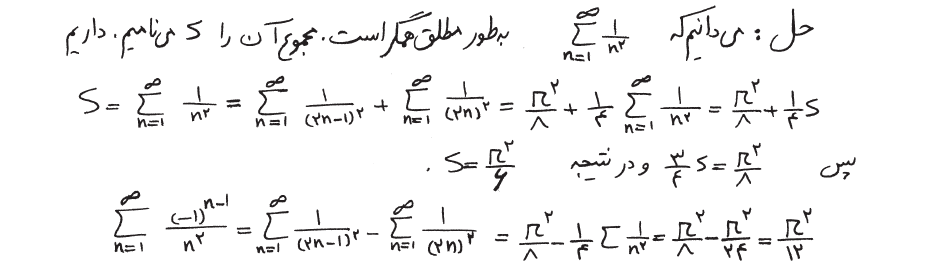 حل : می دانیم که $\sum_{n=1}^{\infty} \frac{۱}{n^۲}$ به طور مطلق همگراست. مجموع آن را S می نامیم. داریم
$S = \sum_{n=1}^{\infty} \frac{۱}{n^۲} = \sum_{n=1}^{\infty} \frac{۱}{(۲n-۱)^۲} + \sum_{n=1}^{\infty} \frac{۱}{(۲n)^۲} = \frac{π^۲}{۸} + \frac{۱}{۴} \sum_{n=1}^{\infty} \frac{۱}{n^۲} = \frac{π^۲}{۸} + \frac{۱}{۴} S$
پس $\frac{۳}{۴} S = \frac{π^۲}{۸}$ و در نتیجه $S = \frac{π^۲}{۶}$ .
$\sum_{n=1}^{\infty} \frac{(-۱)^{n-۱}}{n^۲} = \sum_{n=1}^{\infty} \frac{۱}{(۲n-۱)^۲} - \sum_{n=1}^{\infty} \frac{۱}{(۲n)^۲} = \frac{π^۲}{۸} - \frac{۱}{۴} \sum \frac{۱}{n^۲} = \frac{π^۲}{۸} - \frac{π^۲}{۲۴} = \frac{π^۲}{۱۲}$